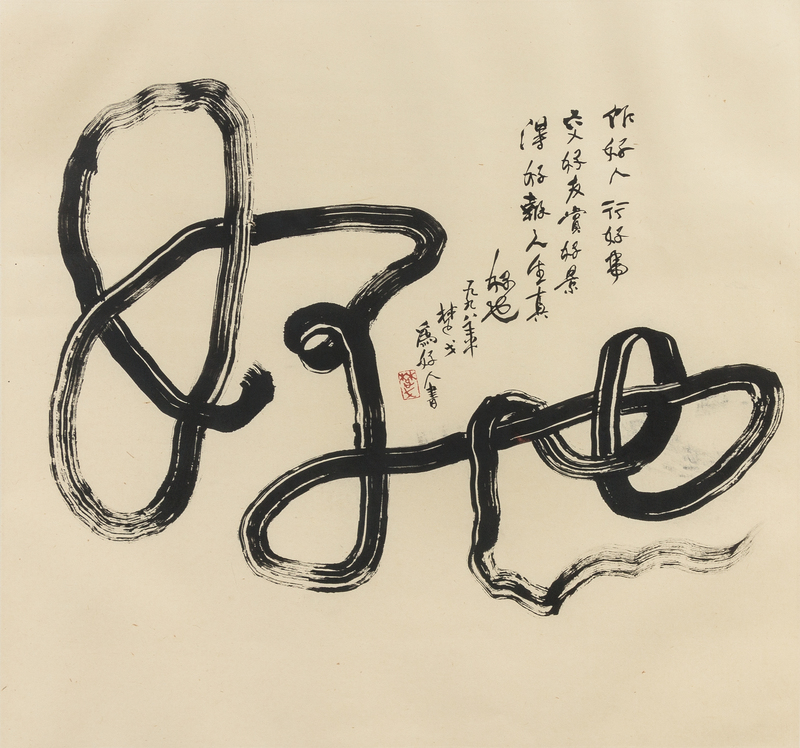 好也
作好人行好事
交好友賞好景
得好報人生真
好也
一九九八年
楚戈
為好人書
楚戈